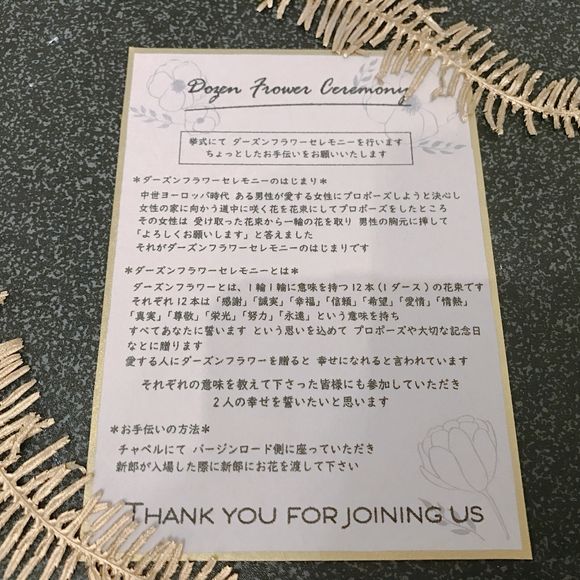 Dozen Frower Ceremony
挙式にて ダーズンフラワーセレモニーを行います
ちょっとしたお手伝いをお願いいたします
＊ダーズンフラワーセレモニーのはじまり＊
中世ヨーロッパ時代 ある男性が愛する女性にプロポーズしようと決心し
女性の家に向かう道中に咲く花を花束にしてプロポーズをしたところ
その女性は 受け取った花束から一輪の花を取り 男性の胸元に挿して
「よろしくお願いします」と答えました
それがダーズンフラワーセレモニーのはじまりです
＊ダーズンフラワーセレモニーとは＊
ダーズンフラワーとは、1輪1輪に意味を持つ12本(1ダース)の花束です
それぞれ12本は「感謝」「誠実」「幸福」「信頼」「希望」「愛情」「情熱」
「真実」「尊敬」「栄光」「努力」「永遠」という意味を持ち
すべてあなたに誓います という思いを込めて プロポーズや大切な記念日
などに贈ります
愛する人にダーズンフラワーを贈ると 幸せになれると言われています
それぞれの意味を教えて下さった皆様にも参加していただき
2人の幸せを誓いたいと思います
＊お手伝いの方法＊
チャペルにて バージンロード側に座っていただき
新郎が入場した際に新郎にお花を渡して下さい
THANK YOU FOR JOINING US